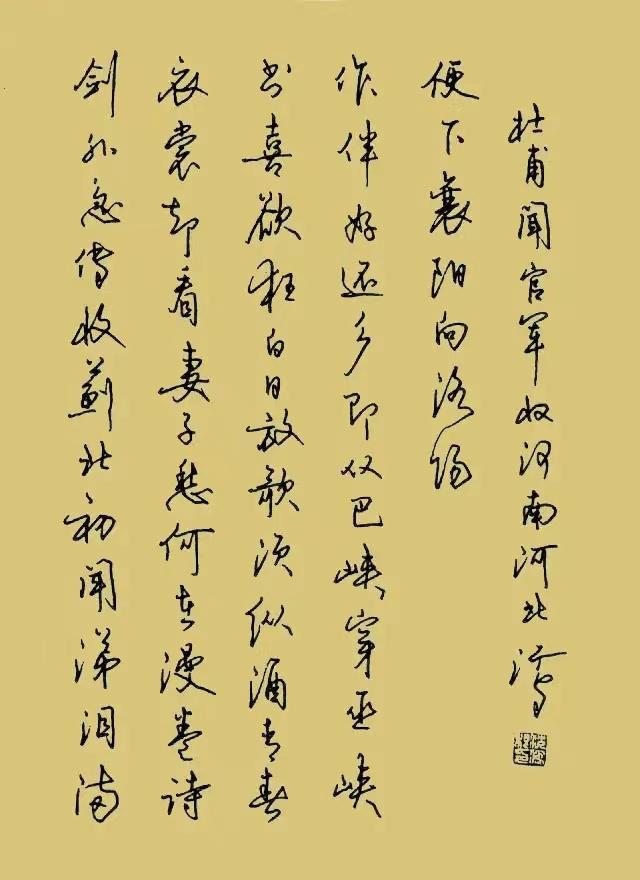 剑外忽传收蓟北初闻涕泪满
衣裳却看妻子愁何在漫卷诗
书喜欲狂白日放歌须纵酒青春
作伴好还乡即从巴峡穿巫峡
便下襄阳向洛阳
杜甫闻官军收河南河北